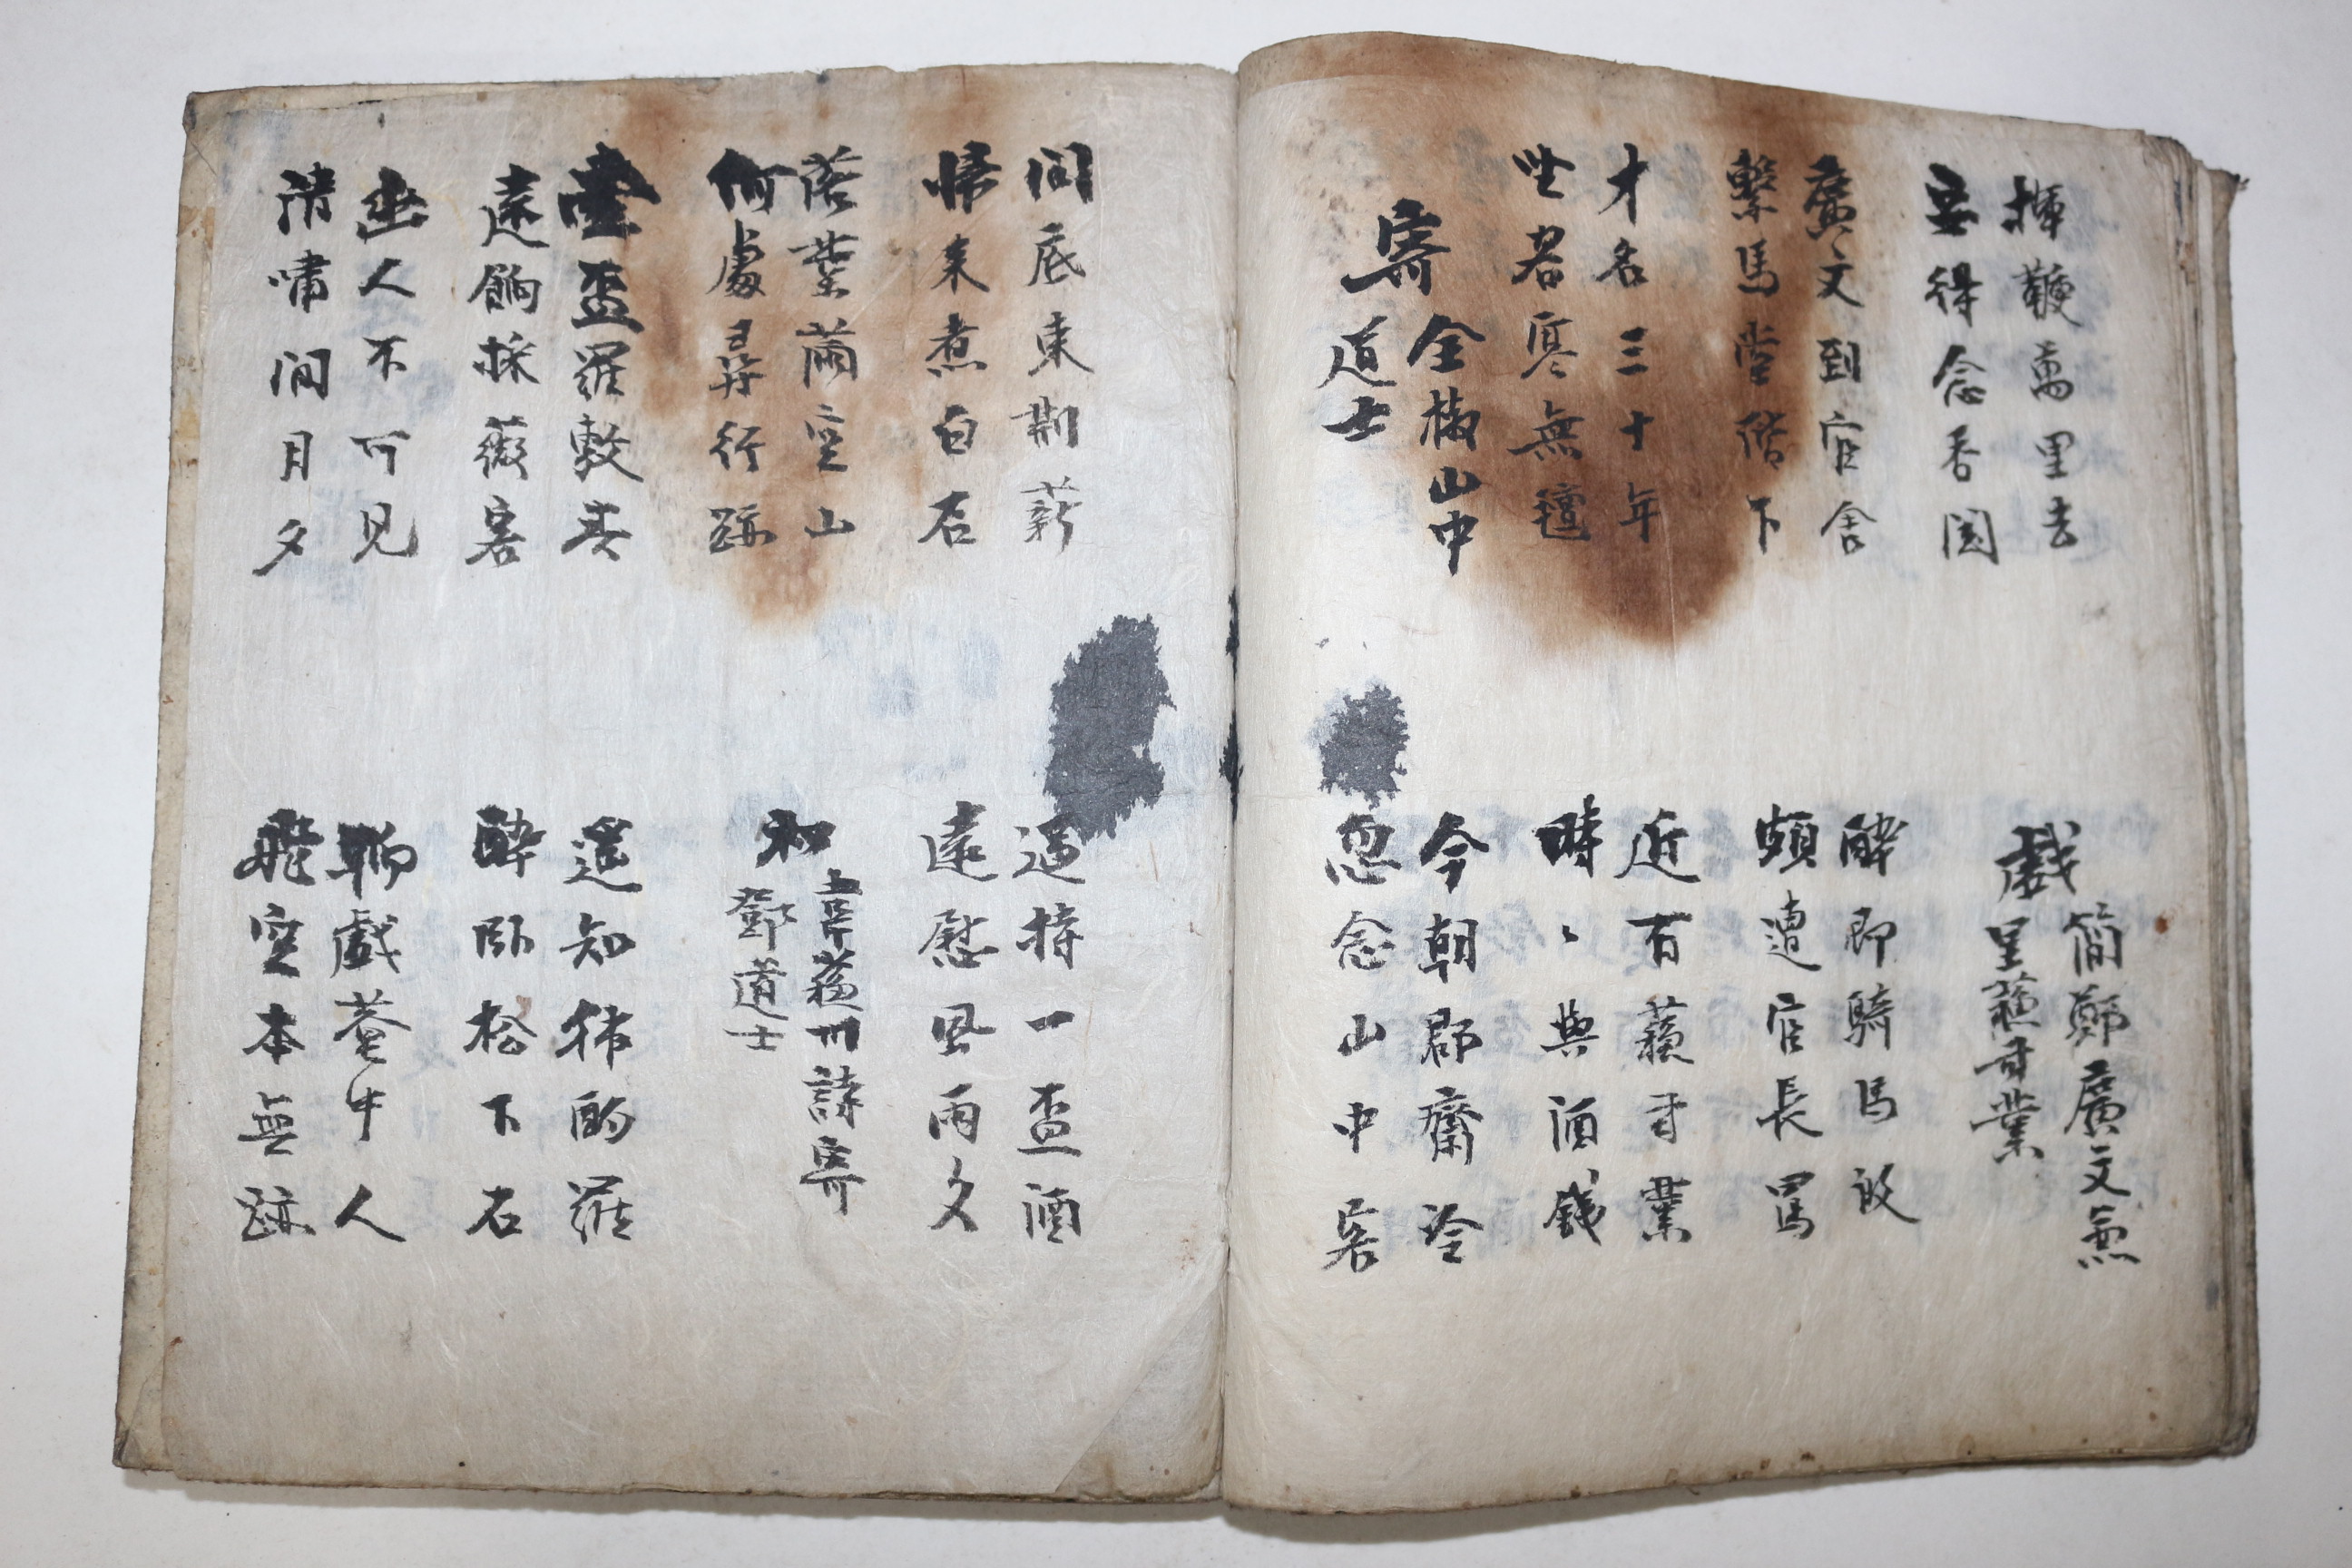 揮鞭萬里去
安得念香閨
戲簡鄭廣文兼
呈蘇司業
廣文到官舍
繫馬堂階下
醉即騎馬皈
頗遭官長罵
才名三十年
坐客寒無氈
近有蘇司業
時〻與酒錢
寄全椒山中
道士
今朝郡齋冷
忽念山中客
澗底束荊薪
歸來煮白石
遙持一盃酒
遠慰風雨夕
落葉滿空山
何處尋行跡
和韋蘇州詩寄
鄧道士
壹盃羅敷春
遠餉採薇客
遙知獨酌罷
醉臥松下石
幽人不可見
清嘯聞月夕
聊戲菴中人
飛空本無跡